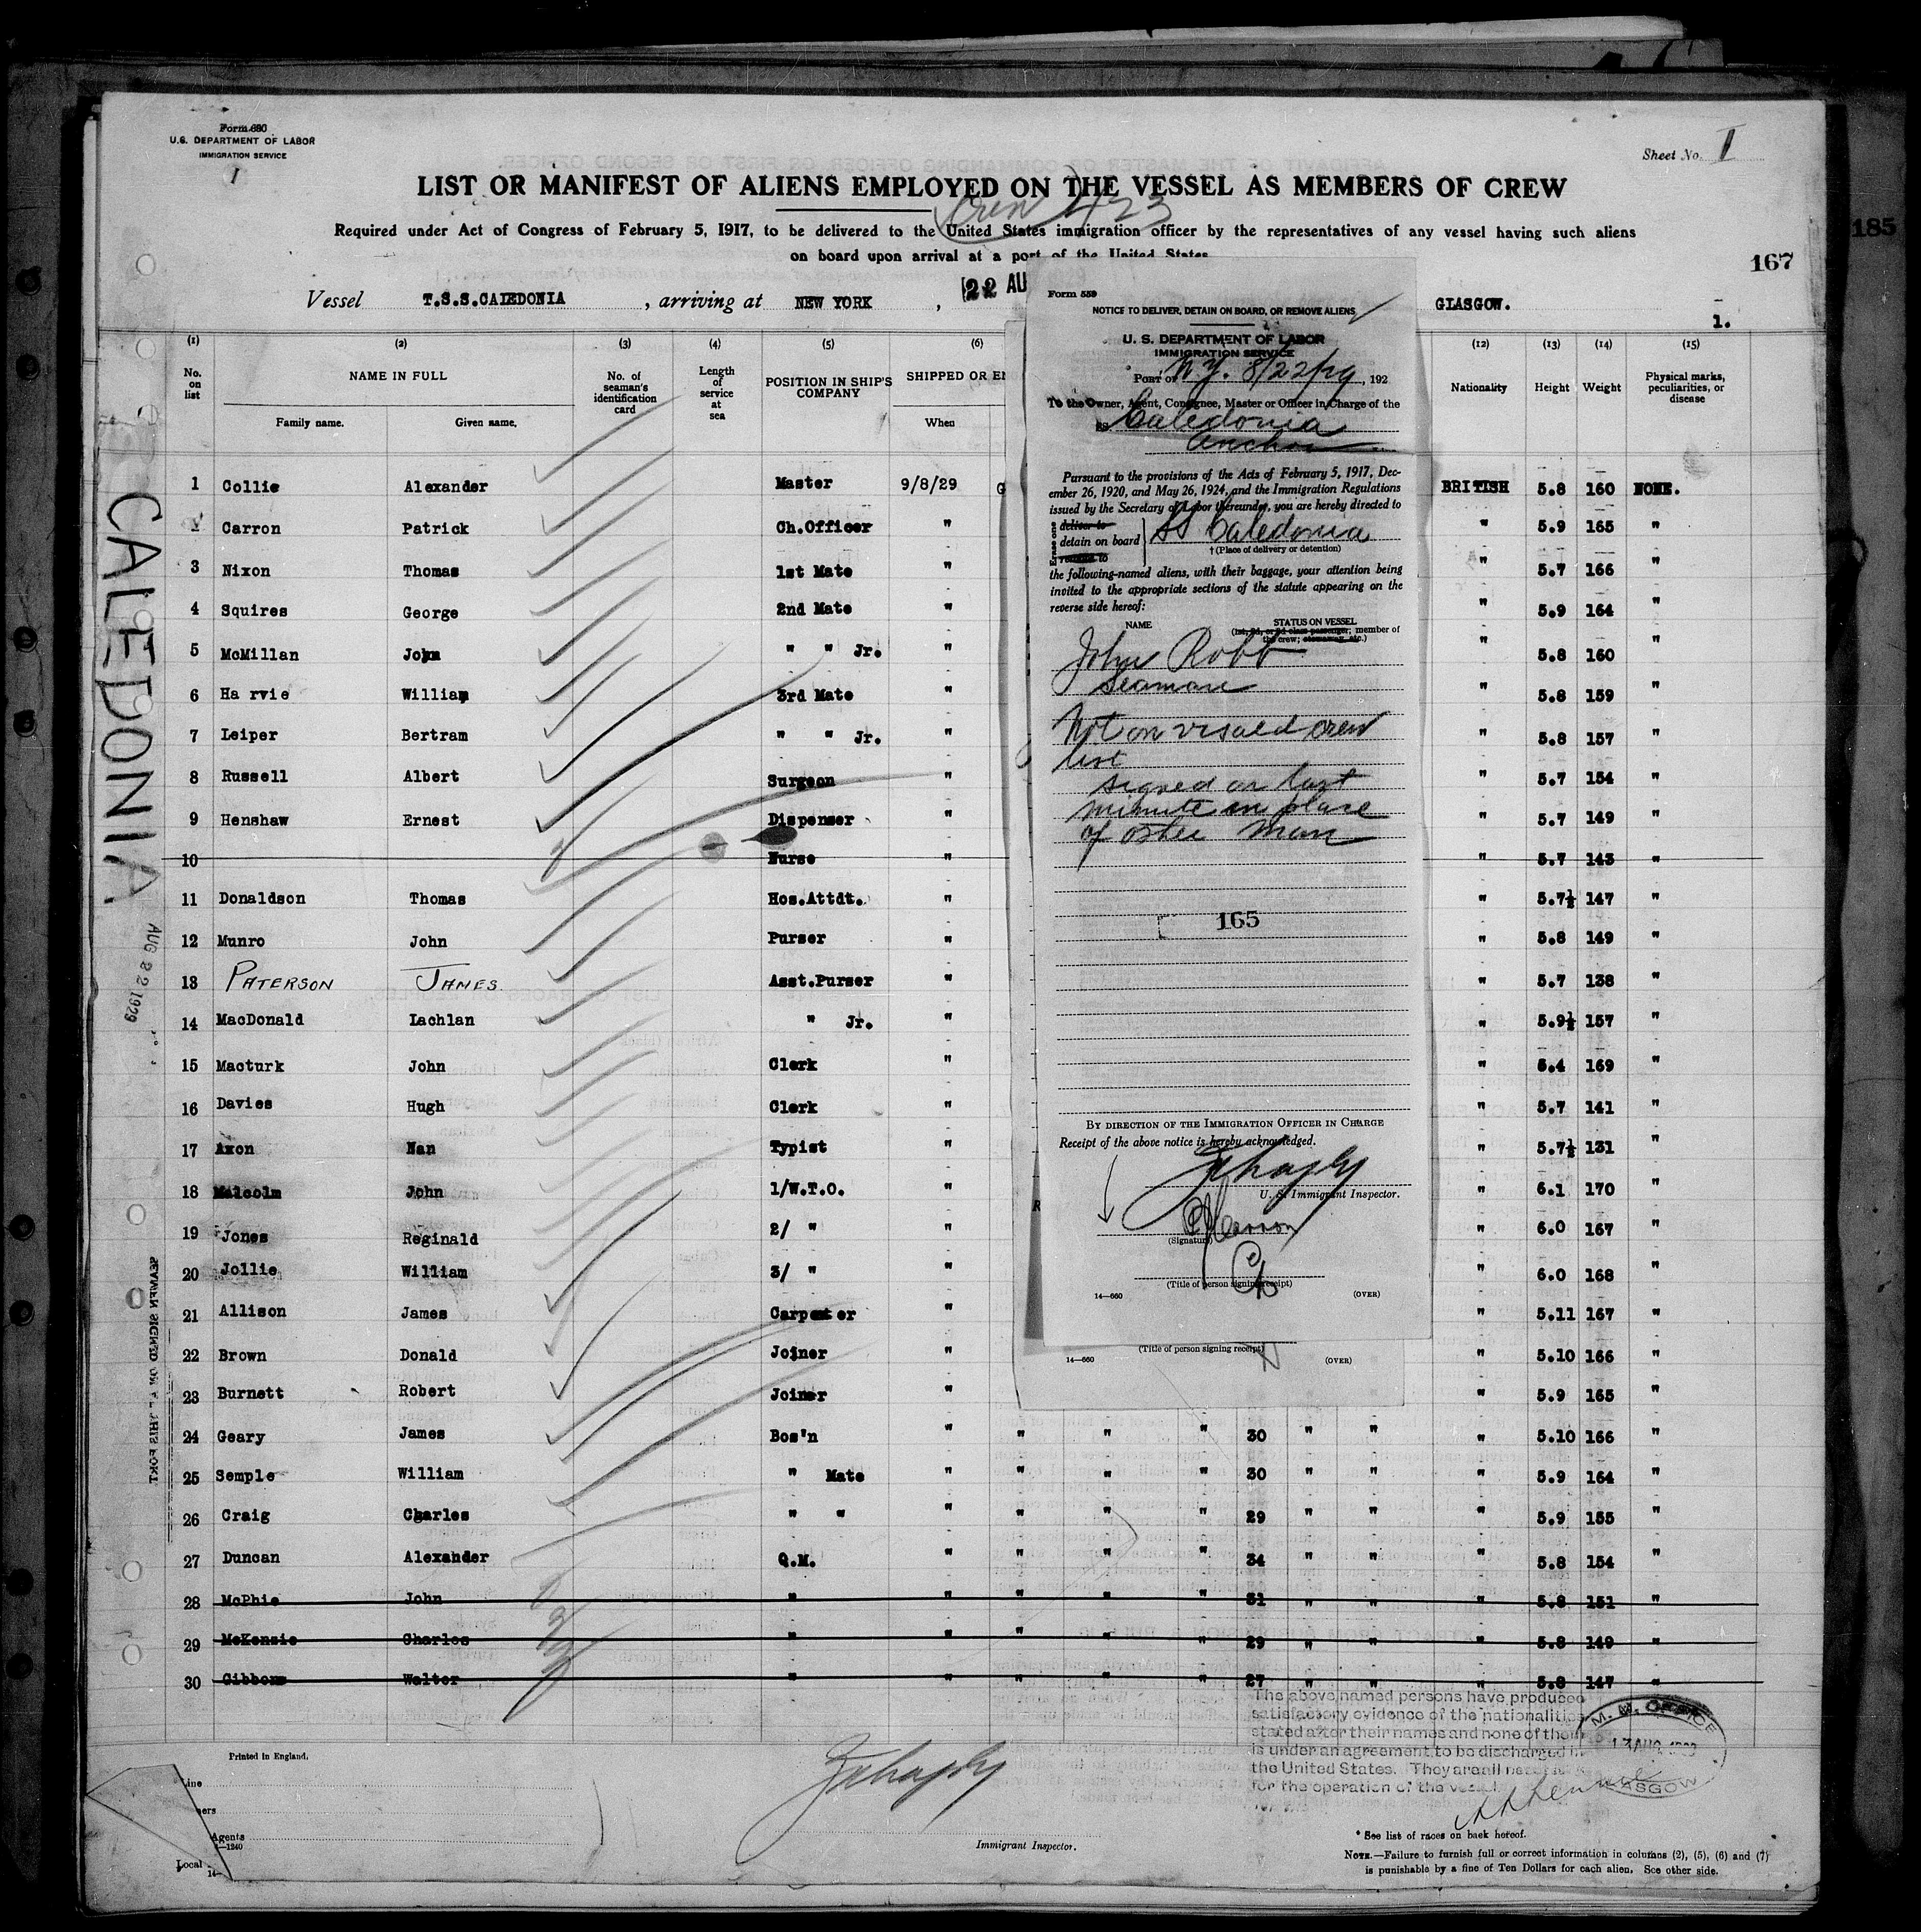 Form 680
U.S. DEPARTMENT OF LABOR
IMMIGRATION SERVICE
I
Sheet No. I
LIST OR MANIFEST OF ALIENS EMPLOYED ON THE VESSEL AS MEMBERS OF CREW
Crew 433
Required under Act of Congress of February 5, 1917, to be delivered to the United States immigration officer by the representatives of any vessel having such aliens
on board upon arrival at a port of the United States
185
167
Vessel T.S.S.CALEDONIA, arriving at NEW YORK, 22 AU GLASGOW.
1.
(1) (2) (3) (4) (5) (6) (12) (13) (14) (15)
No. on list NAME IN FULL No. of seaman's identification card Length of service at sea POSITION IN SHIP'S COMPANY SHIPPED OR EN Nationality Height Weight Physical marks, peculiarities, or disease
Family name. Given name. When
1 Collie Alexander Master 9/8/29 G BRITISH 5.8 160 NONE.
2 Carron Patrick Ch.Officer " " 5.9 165 "
3 Nixon Thomas 1st Mate " " 5.7 166 "
4 Squires George 2nd Mate " " 5.9 164 "
5 McMillan John " " Jr. " " 5.8 160 "
6 Ha rvie William 3rd Mate " " 5.8 159 "
7 Leiper Bertram " " Jr. " " 5.8 157 "
8 Russell Albert Surgeon " " 5.7 154 "
9 Henshaw Ernest Dispenser " " 5.7 149 "
10 Nurse " " 5.7 143 "
11 Donaldson Thomas Hos.Attdt. " " 5.7½ 147 "
12 Munro John Purser " " 5.8 149 "
13 PATERSON JAMES. Asst.Purser " " 5.7 138 "
14 MacDonald Lachlan " Jr. " " 5.9½ 157 "
15 Macturk John Clerk " " 5.4 169 "
16 Davies Hugh Clerk " " 5.7 141 "
17 Axon Nan Typist " " 5.7½ 131 "
18 Malcolm John 1/W.T.O. " " 6.1 170 "
19 Jones Reginald 2/ " " " 6.0 167 "
20 Jollie William 3/ " " " 6.0 168 "
21 Allison James Carpenter " " 5.11 167 "
22 Brown Donald Joiner " " 5.10 166 "
23 Burnett Robert Joiner " " 5.9 165 "
24 Geary James Bos'n " " " " 30 " " " 5.10 166 "
25 Semple William " Mate " " " " 30 " " " 5.9 164 "
26 Craig Charles " " " " " " 29 " " " 5.9 155 "
27 Duncan Alexander Q.M. " " " " 34 " " " 5.8 154 "
28 McPhie John " " " " " 31 " " " 5.8 151 "
29 McKenzie Charles " " " " " 29 " " " 5.8 149 "
30 Gibbons Walter " " " " " 27 " " " 5.8 147 "
CALEDONIA
AUG 22 1929
SEAMEN SIGNED ON AT THIS PORT.
Form 559
NOTICE TO DELIVER, DETAIN ON BOARD, OR REMOVE ALIENS
U. S. DEPARTMENT OF LABOR
IMMIGRATION SERVICE
PORT OF N.Y. 8/22/29, 192
To the Owner, Agent, Consignee, Master or Officer in Charge of the
SS Caledonia
Anchor
Pursuant to the provisions of the Acts of February 5, 1917, Dec-
ember 26, 1920, and May 26, 1924, and the Immigration Regulations
issued by the Secretary of Labor thereunder, you are hereby directed to
Erase one
deliver to
detain on board
remove to
SS Caledonia
† (Place of delivery or detention)
the following-named aliens, with their baggage, your attention being
invited to the appropriate sections of the statute appearing on the
reverse side hereof:
NAME STATUS ON VESSEL
(1st, 2d, or 3d class passenger; member of
the crew; stowaway, etc.)
John Robb
Seaman
Not on visaed crew
list
signed on last
minute in place
of other man
165
BY DIRECTION OF THE IMMIGRATION OFFICER IN CHARGE
Receipt of the above notice is hereby acknowledged.
U. S. Immigrant Inspector.
(Signature)
(Title of person signing receipt)
14—660 (OVER)
(Title of person signing receipt)
14—660 (OVER)
R
The above named persons have produced
satisfactory evidence of the nationalities
stated after their names and none of them
is under an agreement to be discharged in
the United States. They are all necessary
for the operation of the vessel.
M. M. OFFICE
13 AUG 1929
GLASGOW
Printed in England.
Line
ners
Agents
—1240
Local
14—
Immigrant Inspector.
* See list of races on back hereof.
NOTE.—Failure to furnish full or correct information in columns (2), (5), (6) and (7)
is punishable by a fine of Ten Dollars for each alien. See other side.